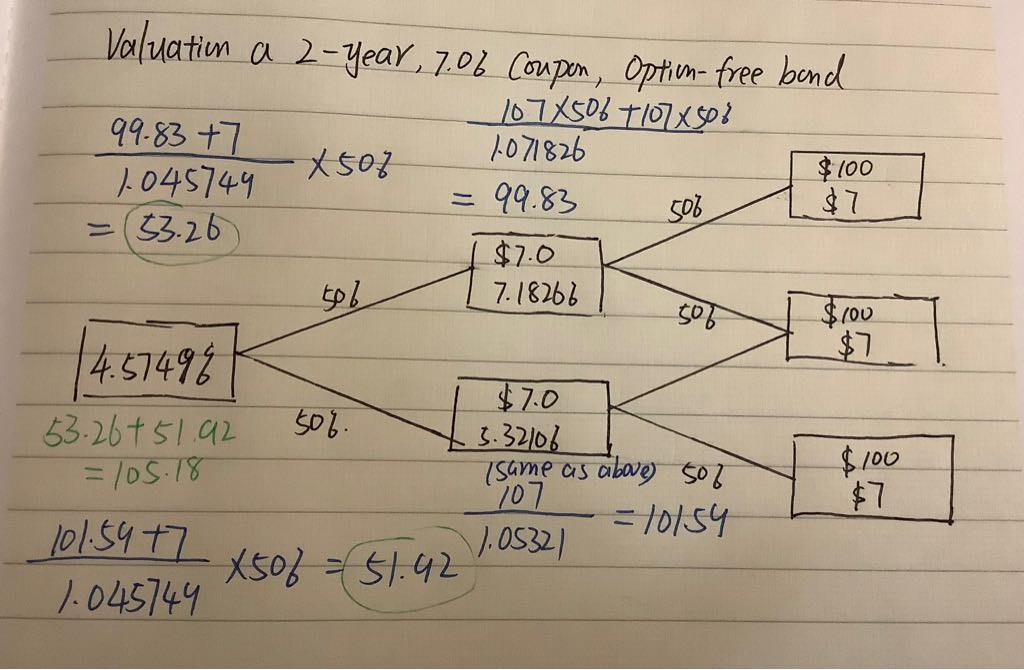 Valuation a 2-year, 7.0% Coupon, Option-free bond
99.83 + 7
1.045749
× 50%
= 53.26
107 × 50% + 107 × 50%
1.071826
= 99.83
50%
$100
$7
$7.0
7.1826%
50%
50%
$100
$7
4.5749%
53.26 + 51.92
= 105.18
50%.
$7.0
5.3210%
(same as above)
50%
$100
$7
107
1.05321
= 101.59
101.59 + 7
1.045749
× 50% = 51.92